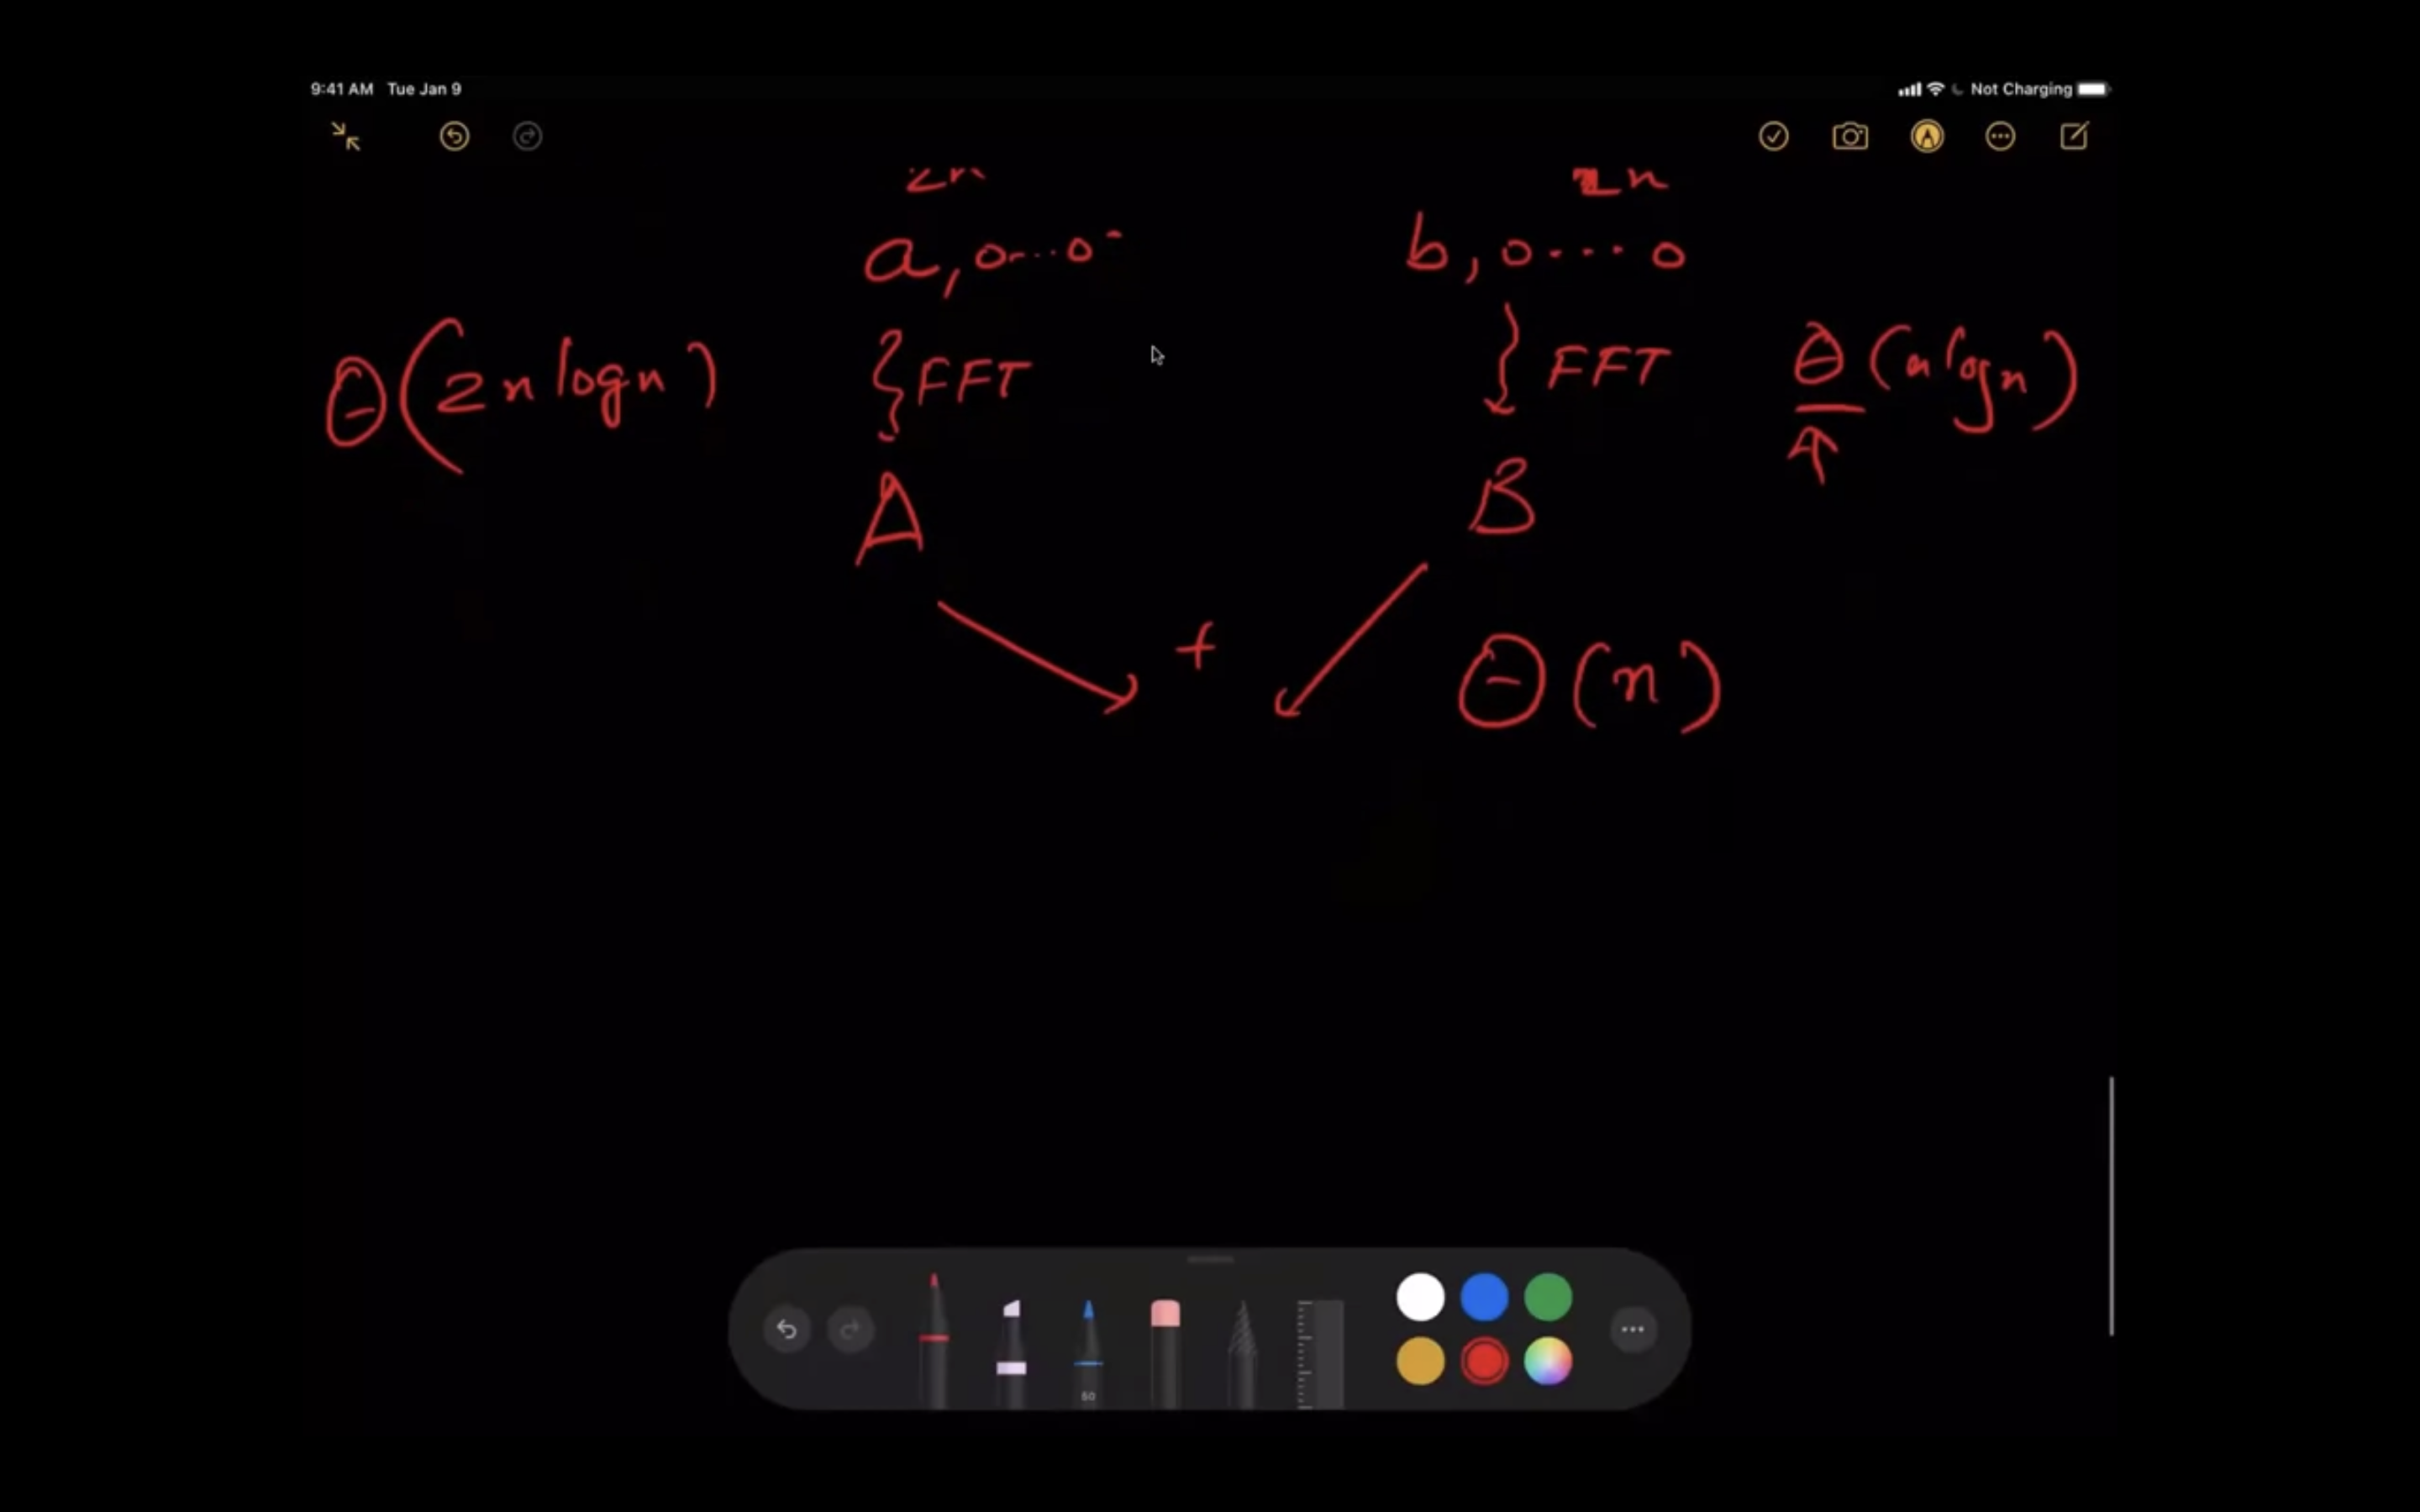 9:41 AM Tue Jan 9 Not Charging
2n 2n
a, 0...0 b, 0...0
Θ(2n log n) FFT FFT Θ(n log n)
A B
+ Θ(n)
50